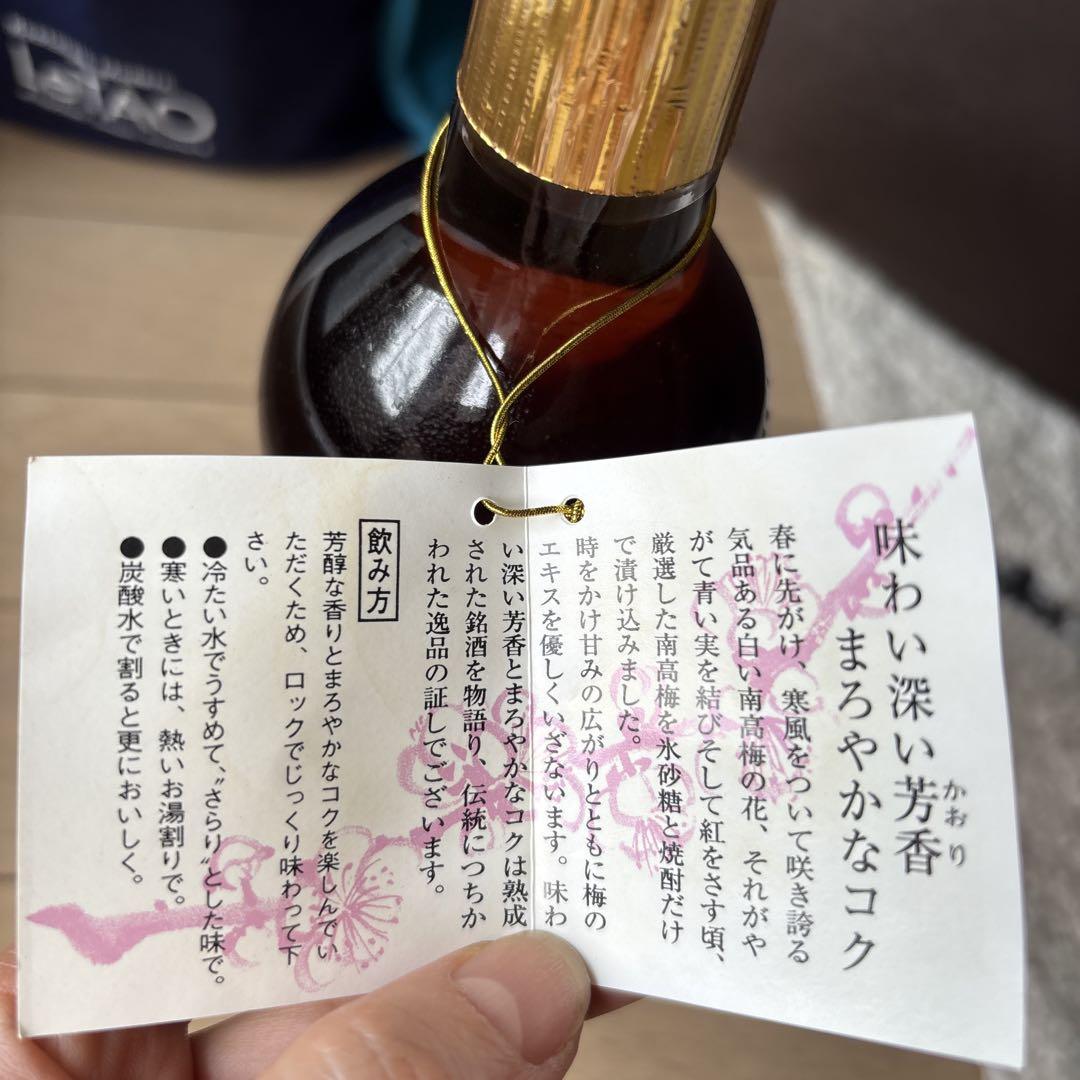 味わい深い芳香
かおり
まろやかなコク
春に先がけ、寒風をついて咲き誇る
気品ある白い南高梅の花、それがや
がて青い実を結びそして紅をさす頃、
厳選した南高梅を氷砂糖と焼酎だけ
で漬け込みました。
時をかけ甘みの広がりとともに梅の
エキスを優しくいざないます。味わ
い深い芳香とまろやかなコクは熟成
された銘酒を物語り、伝統につちか
われた逸品の証しでございます。
飲み方
芳醇な香りとまろやかなコクを楽しんでい
ただくため、ロックでじっくり味わって下
さい。
●冷たい水でうすめて、〝さらり〟とした味で。
●寒いときには、熱いお湯割りで。
●炭酸水で割ると更においしく。
LeTAO